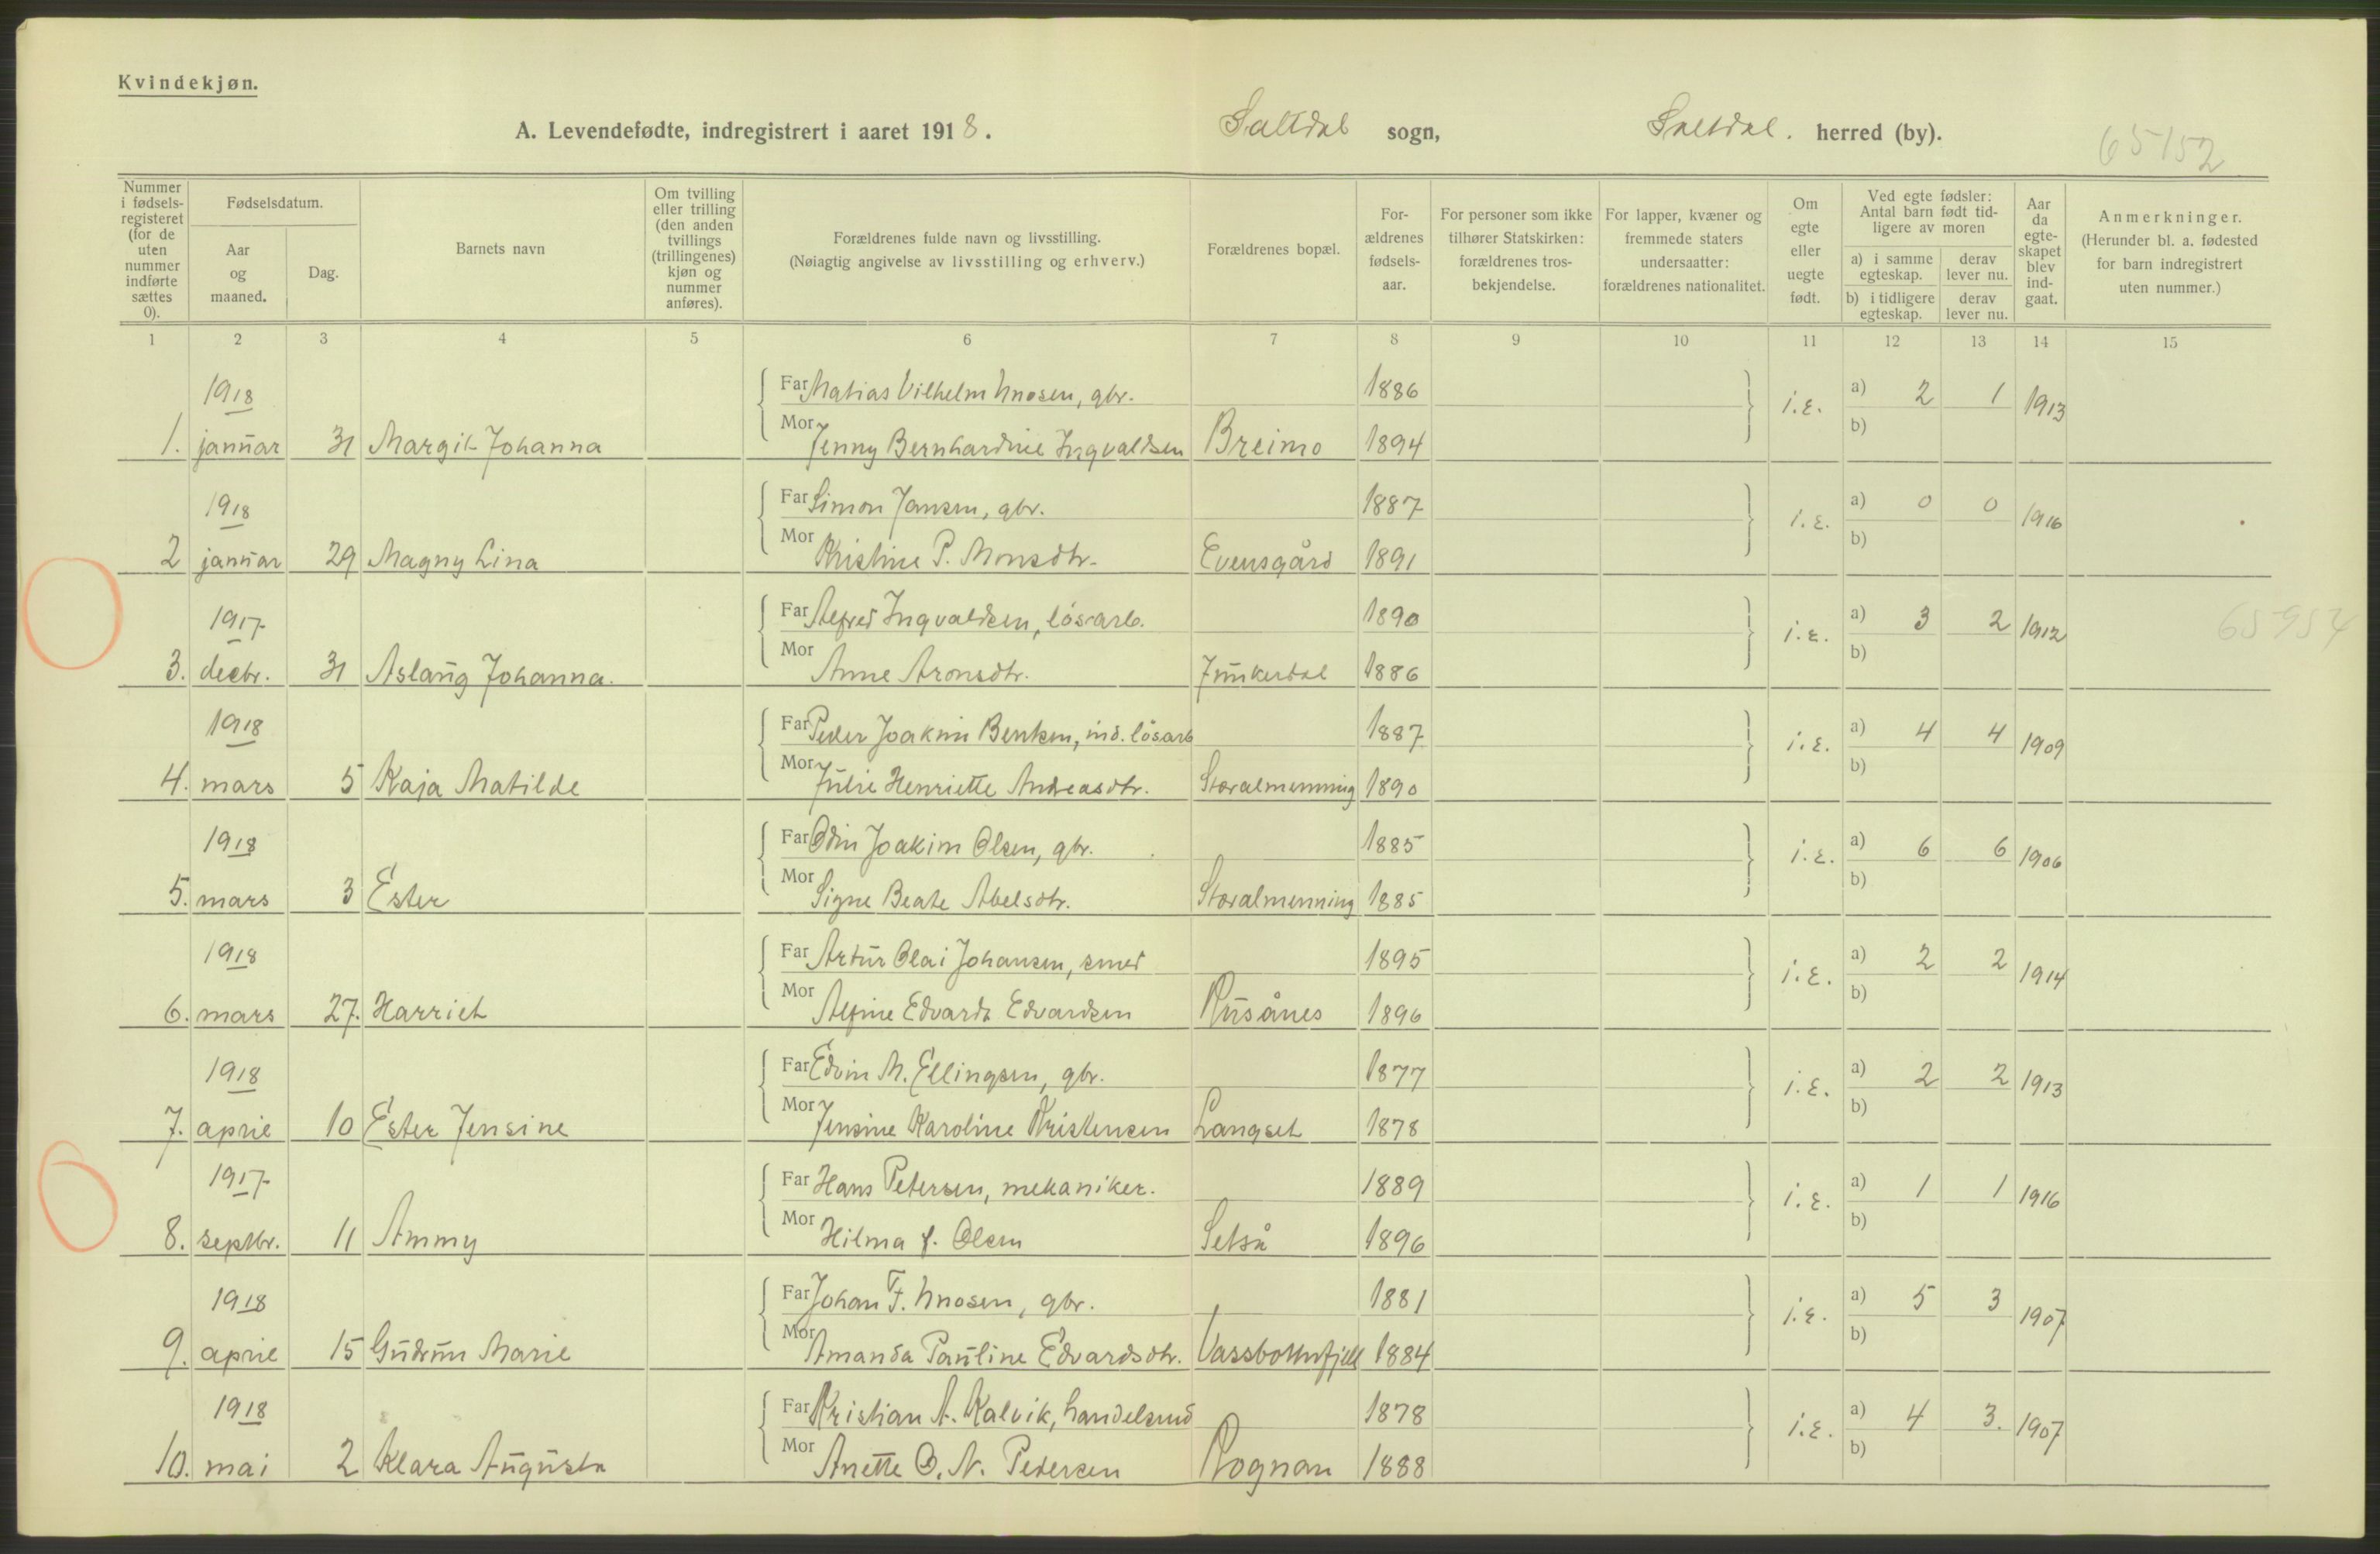 Kvindekjøn.
A. Levendefødte, indregistrert i aaret 1918. Saltdal sogn, Saltdal. herred (by).
65152
Nummer i fødsels-registeret (for de uten nummer indførte sættes 0).
Fødselsdatum.
Aar og maaned.
Dag.
Barnets navn
Om tvilling eller trilling (den anden tvillings (trillingenes) kjøn og nummer anføres).
Forældrenes fulde navn og livsstilling.
(Nøiagtig angivelse av livsstilling og erhverv.)
Forældrenes bopæl.
For-ældrenes fødsels-aar.
For personer som ikke tilhører Statskirken: forældrenes tros-bekjendelse.
For lapper, kvæner og fremmede staters undersaatter: forældrenes nationalitet.
Om egte eller uegte født.
Ved egte fødsler: Antal barn født tid-ligere av moren
a) i samme egteskap.
derav lever nu.
b) i tidligere egteskap.
derav lever nu.
Aar da egte-skapet blev ind-gaat.
Anmerkninger.
(Herunder bl. a. fødested for barn indregistrert uten nummer.)
1 2 3 4 5 6 7 8 9 10 11 12 13 14 15
1918 Far Matias Vilhelm Knosen, gbr. 1886 i.e. a) 2 1 1913
1. januar 31 Margit Johanna Mor Jenny Bernhardine Ingvaldsen Breimo 1894 b)
1918 Far Simon Jansen, gbr. 1887 i.e. a) 0 0 1916
2 januar 29 Magny Lina Mor Kristine P. Monsdtr. Evensgård 1891 b)
1917 Far Alfred Ingvaldsen, løsarb. 1890 i.e. a) 3 2 1912 65954
3. decbr. 31 Aslaug Johanna. Mor Anne Aronsdtr. Junkerdal 1886 b)
1918 Far Peder Joakim Bentsen, ind. løsarb 1887 i.e. a) 4 4 1909
4. mars 5 Kaja Matilde Mor Julie Henriette Andreasdtr. Storalmenning 1890 b)
1918 Far Odin Joakim Olsen, gbr. 1885 i.e. a) 6 6 1906
5. mars 3 Ester Mor Signe Beate Abelsdtr. Storalmenning 1885 b)
1918 Far Artur Olai Johansen, smed 1895 i.e. a) 2 2 1914
6. mars 27. Harriet Mor Alfine Edvarda Edvardsen Rusånes 1896 b)
1918 Far Edvin M. Ellingsen, gbr. 1877 i.e. a) 2 2 1913
7. april 10 Ester Jensine Mor Jensine Karoline Kristensen Langset 1878 b)
1917 Far Hans Petersen, mekaniker. 1889 i.e. a) 1 1 1916
8. septbr. 11 Ammy Mor Hilma f. Olsen Setså 1896 b)
1918 Far Johan F. Knosen, gbr. 1881 i.e. a) 5 3 1907
9. april 15 Gudrun Marie Mor Amanda Pauline Edvardsdtr. Vassbotnfjell 1884 b)
1918 Far Kristian A. Kalvik, handelsmd 1878 i.e. a) 4 3. 1907
10. mai 2 Klara Augusta Mor Anette O. N. Pedersen Rognan 1888 b)